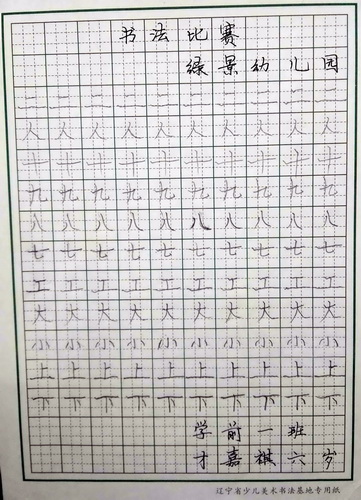 书法比赛
绿景幼儿园
二二二二二二二二二二
人人人人人人人人人人
艹艹艹艹艹艹艹艹艹艹
九九九九九九九九九九
八八八八八八八八八八
七七七七七七七七七七
工工工工工工工工工工
大大大大大大大大大大
小小小小小小小小小小
上上上上上上上上上上
下下下下下下下下下下
学前一班
才嘉棋六岁
辽宁省少儿美术书法基地专用纸